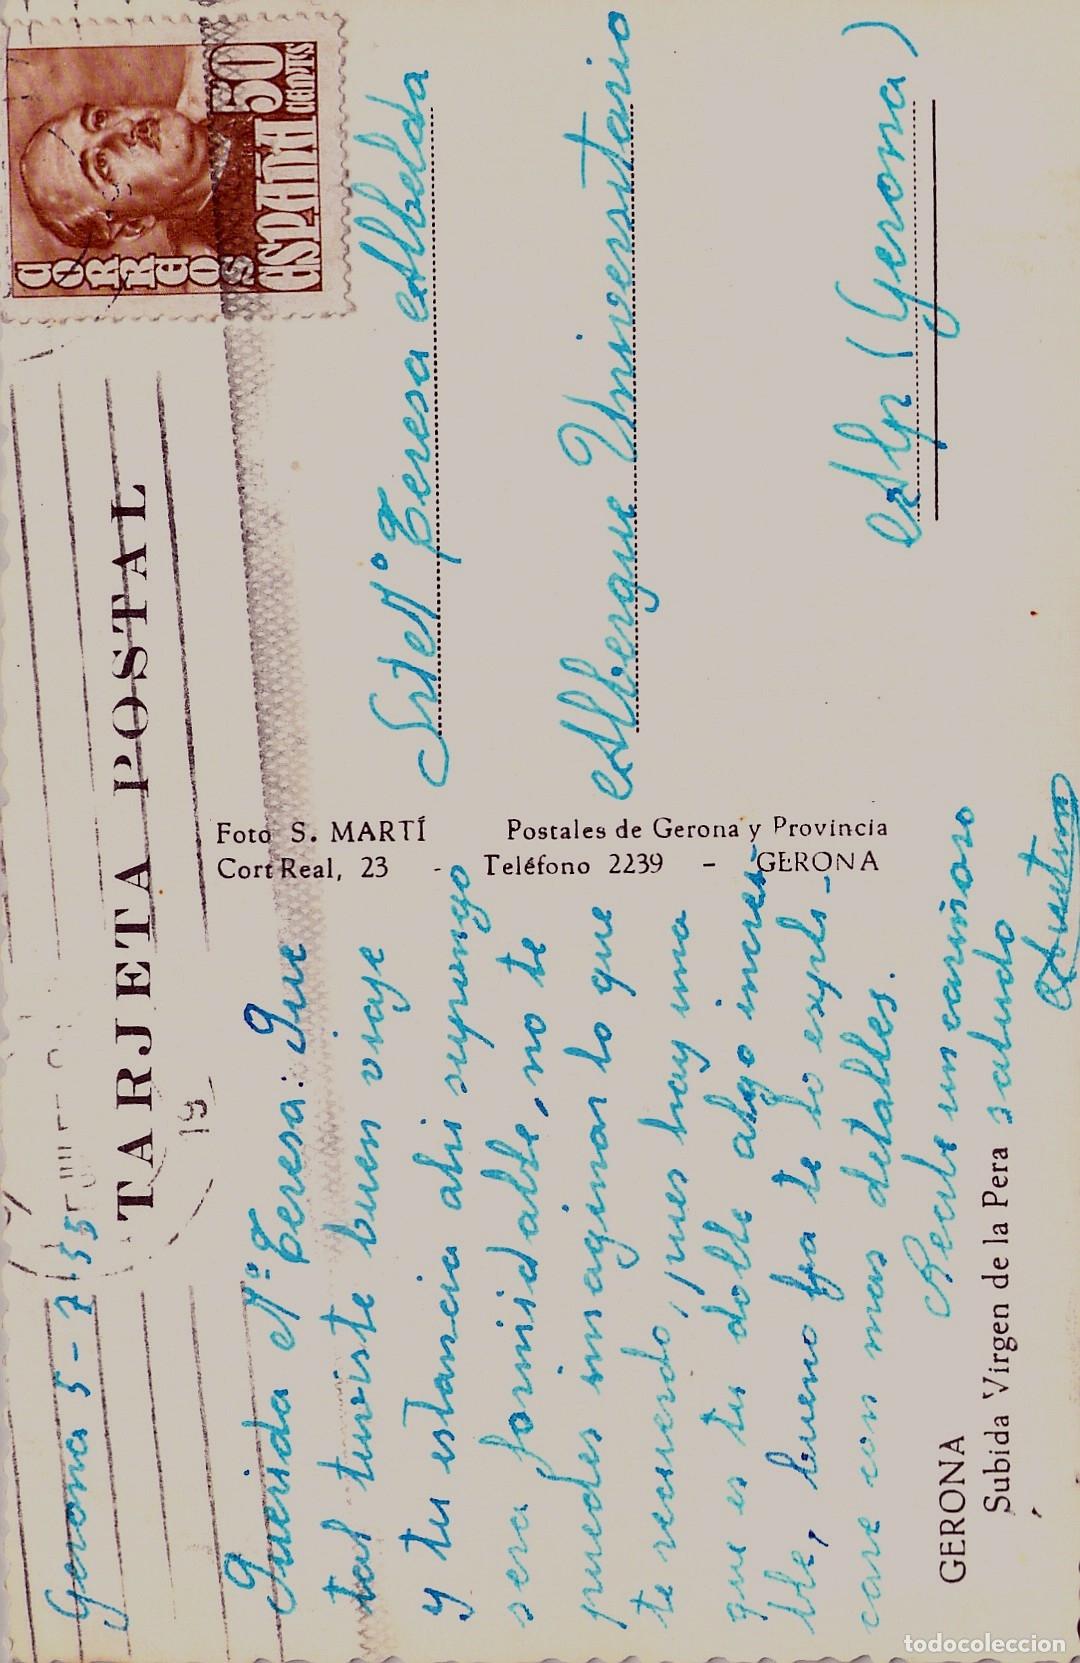 CORREOS
ESPAÑA
50
CENTS
TARJETA POSTAL
19
Gerona 5-7-55
Querida Mª Teresa: Que
tal tuviste buen viaje
y tu estancia ahi supongo
sera formidable, no te
puedes imaginar lo que
te recuerdo, pues hay una
que es tu doble algo increi-
ble, bueno ya te lo expli-
care con mas detalles.
Recibe un cariñoso
saludo
Foto S. MARTÍ
Cort Real, 23 -
Postales de Gerona y Provincia
Teléfono 2239 - GERONA
Srta Mª Teresa Albelda
Albergue Universitario
Alp (Gerona)
GERONA
Subida Virgen de la Pera
todocoleccion